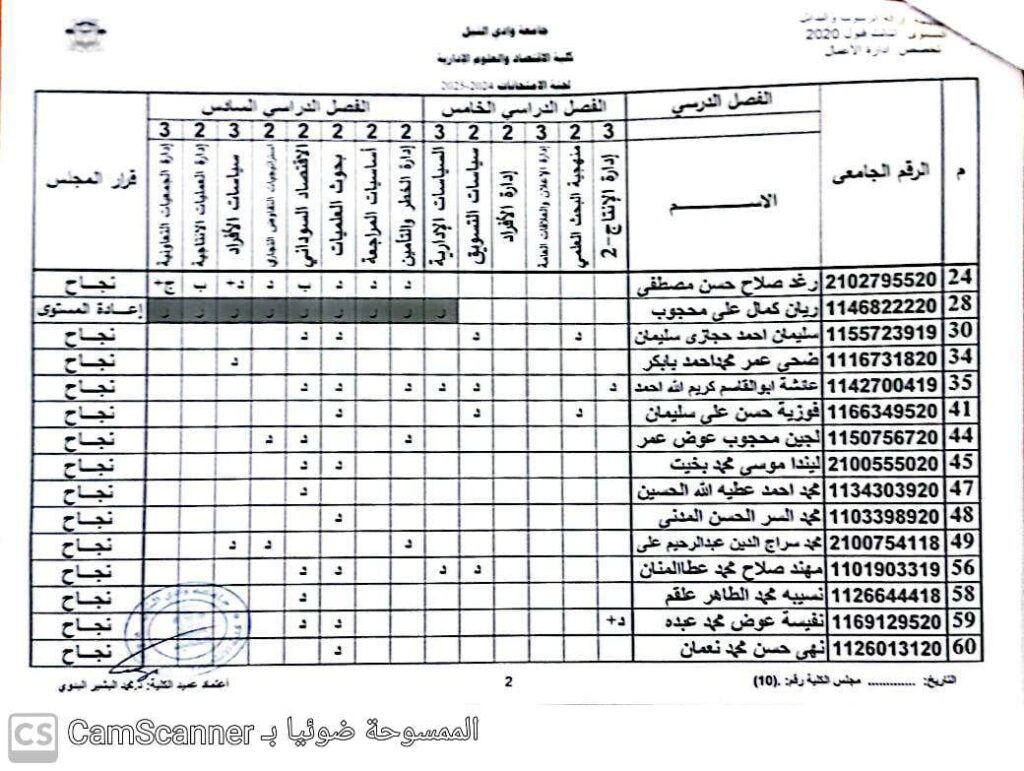 جامعة وادى النيل
كلية الاقتصاد والعلوم الادارية
لجنة الامتحانات 2024-2025
المستوى الثالث 2020
تخصص ادارة الاعمال
م الرقم الجامعى الفصل الدرسي الفصل الدراسي الخامس الفصل الدراسي السادس قرار المجلس
3 2 3 2 2 3 2 2 2 2 2 3 2 3
الاســـم إدارة الإنتاج-2 منهجية البحث العلمي إدارة الإعلان والعلاقات العامة إدارة الأفراد سياسات التسويق السياسات الإدارية إدارة الخطر والتأمين أساسيات المراجعة بحوث العلميات الاقتصاد السوداني استراتيجيات التفاوض التجاري سياسات الأفراد إدارة العمليات الانتاجية إدارة الجمعيات التعاونية
24 2102795520 رغد صلاح حسن مصطفى د د د ب د د+ ب ج+ نجـــاح
28 1146822220 ريان كمال على محجوب ر ر ر ر ر ر ر ر ر إعـادة المستوى
30 1155723919 سليمان احمد حجازى سليمان د د د د نجـــاح
34 1116731820 ضحى عمر محمداحمد بابكر د نجـــاح
35 1142700419 عائشة ابوالقاسم كريم الله احمد د د د د د د نجـــاح
41 1166349520 فوزية حسن على سليمان د د د نجـــاح
44 1150756720 لجين محجوب عوض عمر د د د نجـــاح
45 2100555020 ليندا موسى محمد بخيت د د نجـــاح
47 1134303920 محمد احمد عطيه الله الحسين د نجـــاح
48 1103398920 محمد السر الحسن المدنى د نجـــاح
49 2100754118 محمد سراج الدين عبدالرحيم على د د د نجـــاح
56 1101903319 مهند صلاح محمد عطاالمنان د د د د نجـــاح
58 1126644418 نسيبه محمد الطاهر علقم د نجـــاح
59 1169129520 نفيسة عوض محمد عبده د+ د د نجـــاح
60 1126013120 نهى حسن محمد نعمان د نجـــاح
التاريخ: ............. مجلس الكلية رقم: .(10) 2 أعتماد عميد الكلية: د.محمد البشير البدوي
CS الممسوحة ضوئيا بـ CamScanner